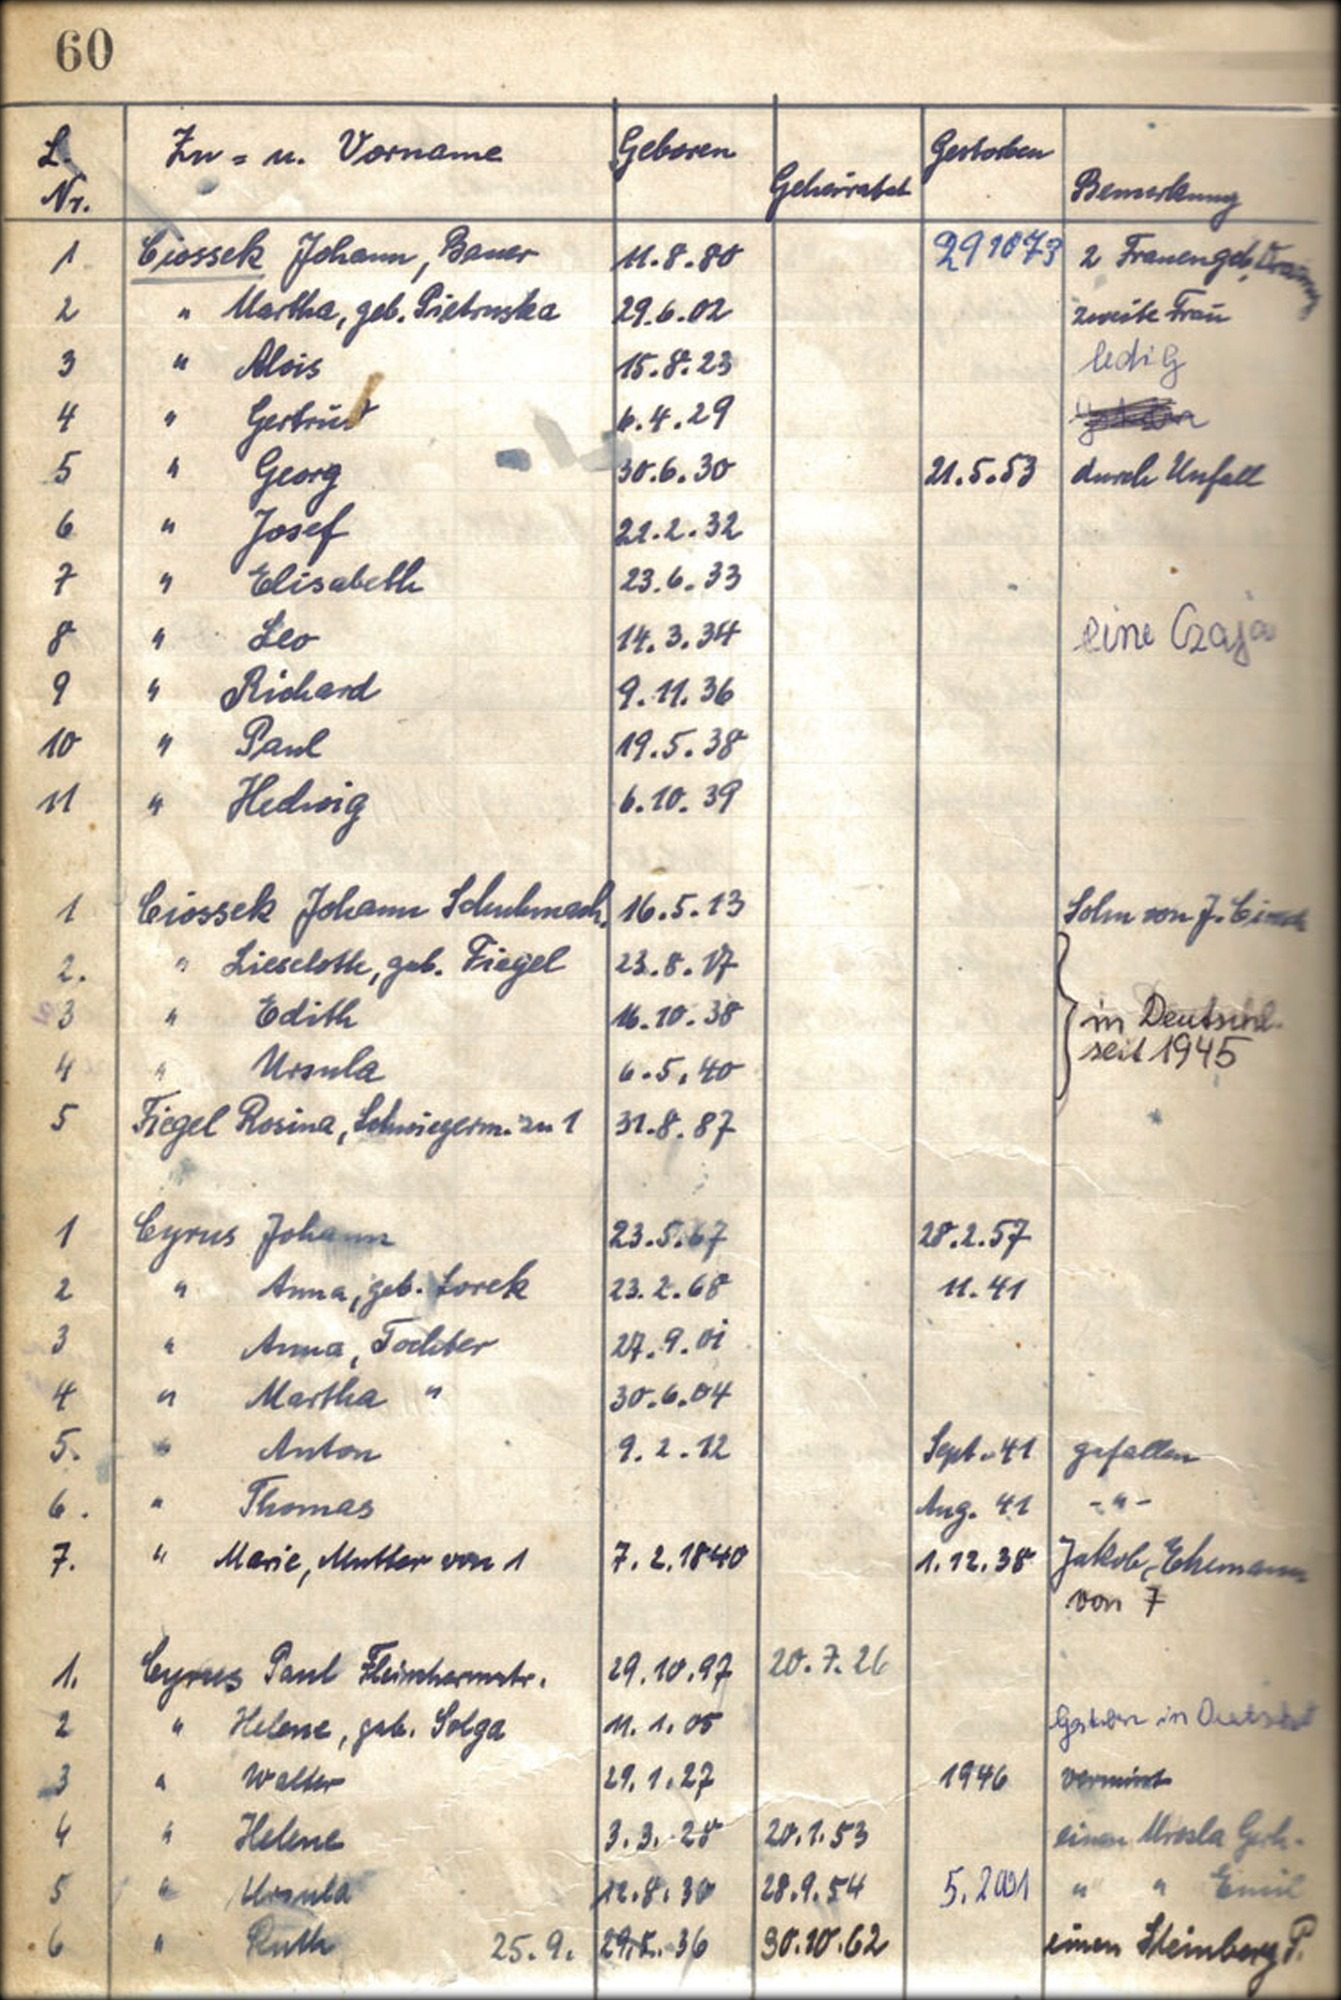 60
L. Nr. Zu = u. Vorname Geboren Geheiratet Gestorben Bemerkung
1 Ciossek Johann, Bauer 11.8.80 291073 2 Frauen geb.
2 " Martha, geb. Pietruska 29.6.02 zweite Frau
3 " Alois 15.8.23 ledig
4 " Gertrud 6.4.29
5 " Georg 30.6.30 21.5.53 durch Unfall
6 " Josef 22.2.32
7 " Elisabeth 23.6.33
8 " Leo 14.3.34 eine Czaja
9 " Richard 9.11.36
10 " Paul 19.5.38
11 " Hedwig 6.10.39
1 Ciossek Johann Schuhmach. 16.5.13 Sohn von J. Ciossek
2. " Lieselotte, geb. Fiegel 23.8.17
3 " Edith 16.10.38 in Deutschl.
4 " Ursula 6.5.40 seit 1945
5 Fiegel Rosina, Schwiegerm. zu 1 31.8.87
1 Cyrus Johann 23.5.67 28.2.57
2 " Anna, geb. Lorek 23.2.68 11.41
3 " Anna, Tochter 27.9.01
4 " Martha " 30.6.04
5. " Anton 9.2.12 Sept. 41 gefallen
6. " Thomas Aug. 41 -"-
7. " Marie, Mutter von 1 7.2.1840 1.12.38 Jakob, Ehemann
von 7
1. Cyrus Paul Fleischermstr. 29.10.97 20.7.26
2 " Helene, geb. Solga 11.1.05 in
3 " Walter 29.1.27 1946 vermisst
4 " Helene 3.3.28 20.1.53 einen
5 " Ursula 12.8.30 28.9.54 5.2001 " " Emil
6 " Ruth 25.9. 36 30.10.62 einen Steinberg P.